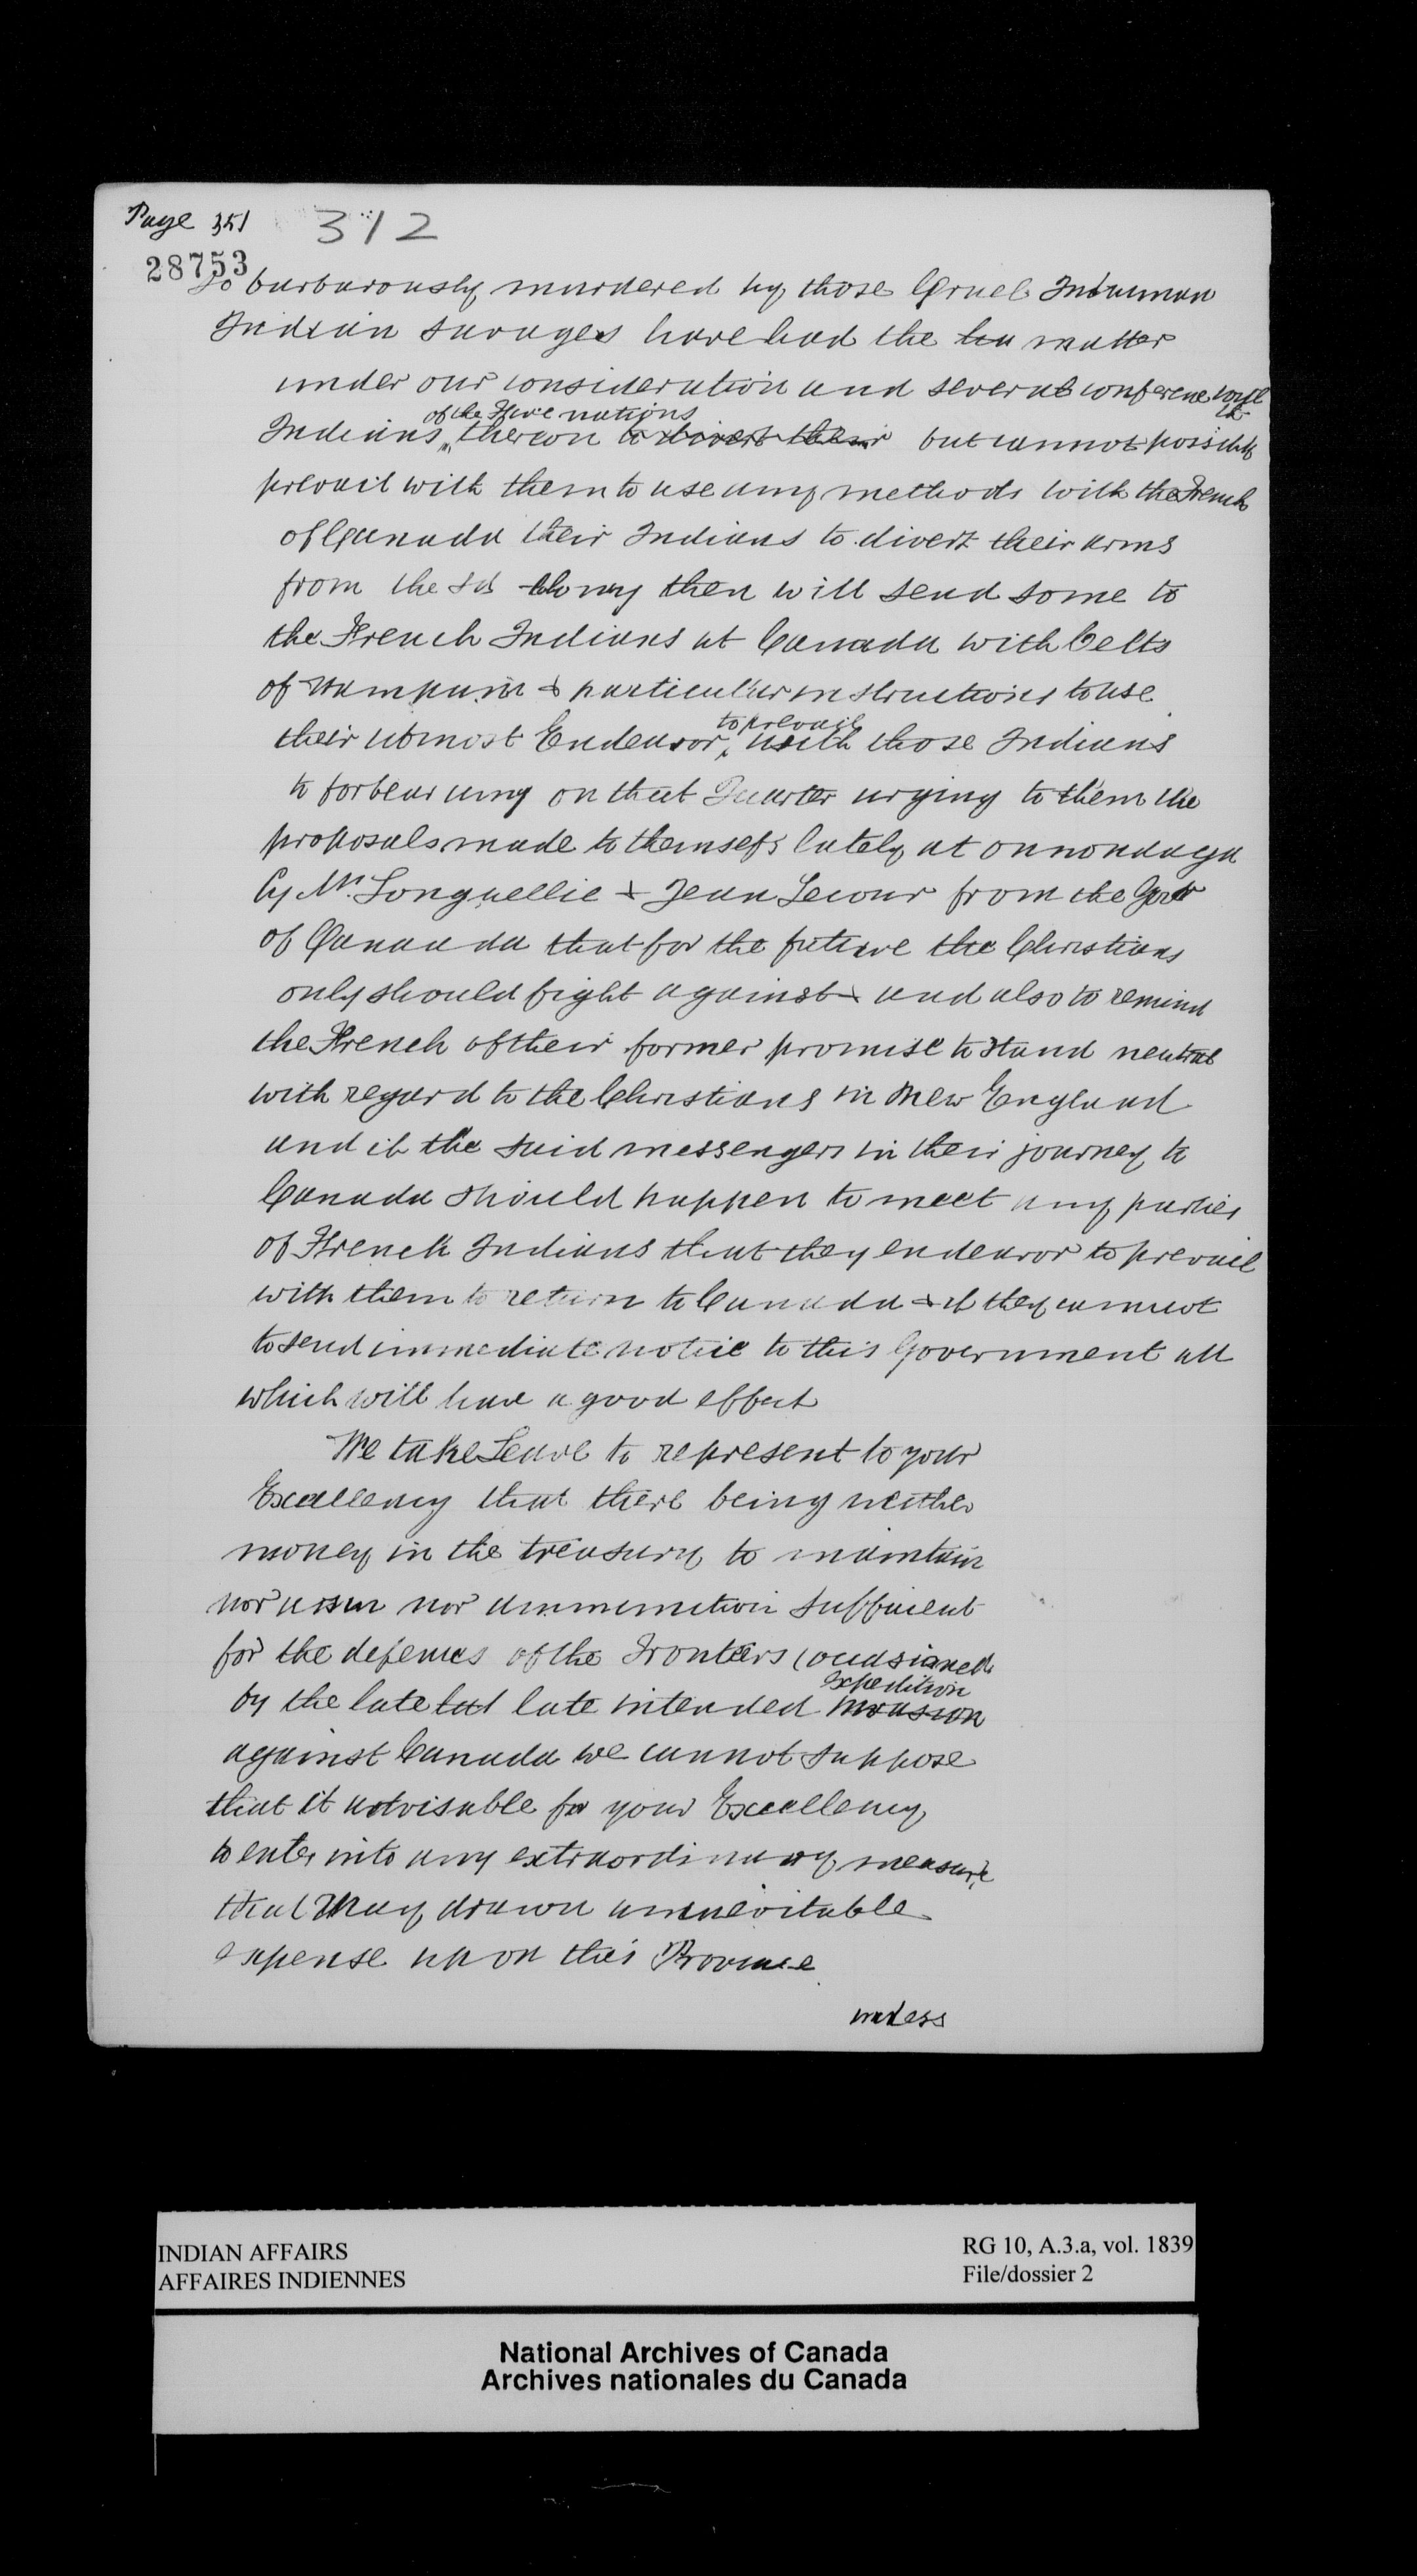 Page 351 312
28753
So barbarously murdered by those Cruel Inhuman
Indian Savages have had the matter
under our consideration and several conference with the
of the Five nations
Indians thereon to divert their but cannot possibly
prevail with them to use any methods with the French
of Canada their Indians to divert their arms
from the sd then will send some to
the French Indians at Canada with belts
of Wampum & particular instructions to use
to prevail
their utmost Endeavor with those Indians
to forbear on that Quarter urging to them the
proposals made to themselfs lately at onnondaga
by Mr. Longuellie & Jean Lecour from the Govr
of Canaada that for the future the Christians
only should fight against & and also to remind
the French of their former promise to stand neutral
with regard to the Christians in New England
and if the said messengers in their journey to
Canada should happen to meet any parties
of French Indians that they endeavor to prevail
with them to return to Canada & if they cannot
to send immediate notice to this Government all
which will have a good effect
We take Leave to represent to your
Excellency that there being neither
money in the treasury to maintain
nor nor ammunition sufficient
for the defences of the Frontiers occasioned
Expedition
by the late late intended invasion
against Canada we cannot suppose
that it advisable for your Excellency
to enter into any extraordinary measure
that May drawn
expense upon this Province
unless
INDIAN AFFAIRS
AFFAIRES INDIENNES
RG 10, A.3.a, vol. 1839
File/dossier 2
National Archives of Canada
Archives nationales du Canada